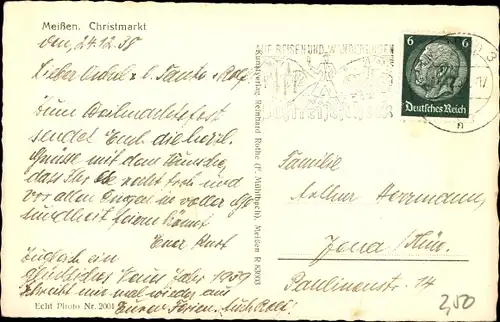 Meißen. Christmarkt
den, 24.12.38
Lieber Onkel u. l. Tante u. Rolf,
Zum Weihnachtsfest
sendet Euch die herzl.
Grüsse mit dem Wunsche,
dass Ihr es recht froh und
vor allen Dingen in voller Ge
sundheit feiern könnt
Euer Kurt
Zugleich ein
glückliches Neues Jahr 1939
Schreibt uns mal wieder aus
Euren Ferien. Auch Rolf!
Echt Photo Nr. 2001
Kunstverlag Reinhard Rothe (P. Mühlbach), Meißen R 83033
AUF REISEN UND WANDERUNGEN
6 6
Deutsches Reich
Familie
Arthur Herrmann,
Jena Thür.
Paulinenstr. 14
2,50